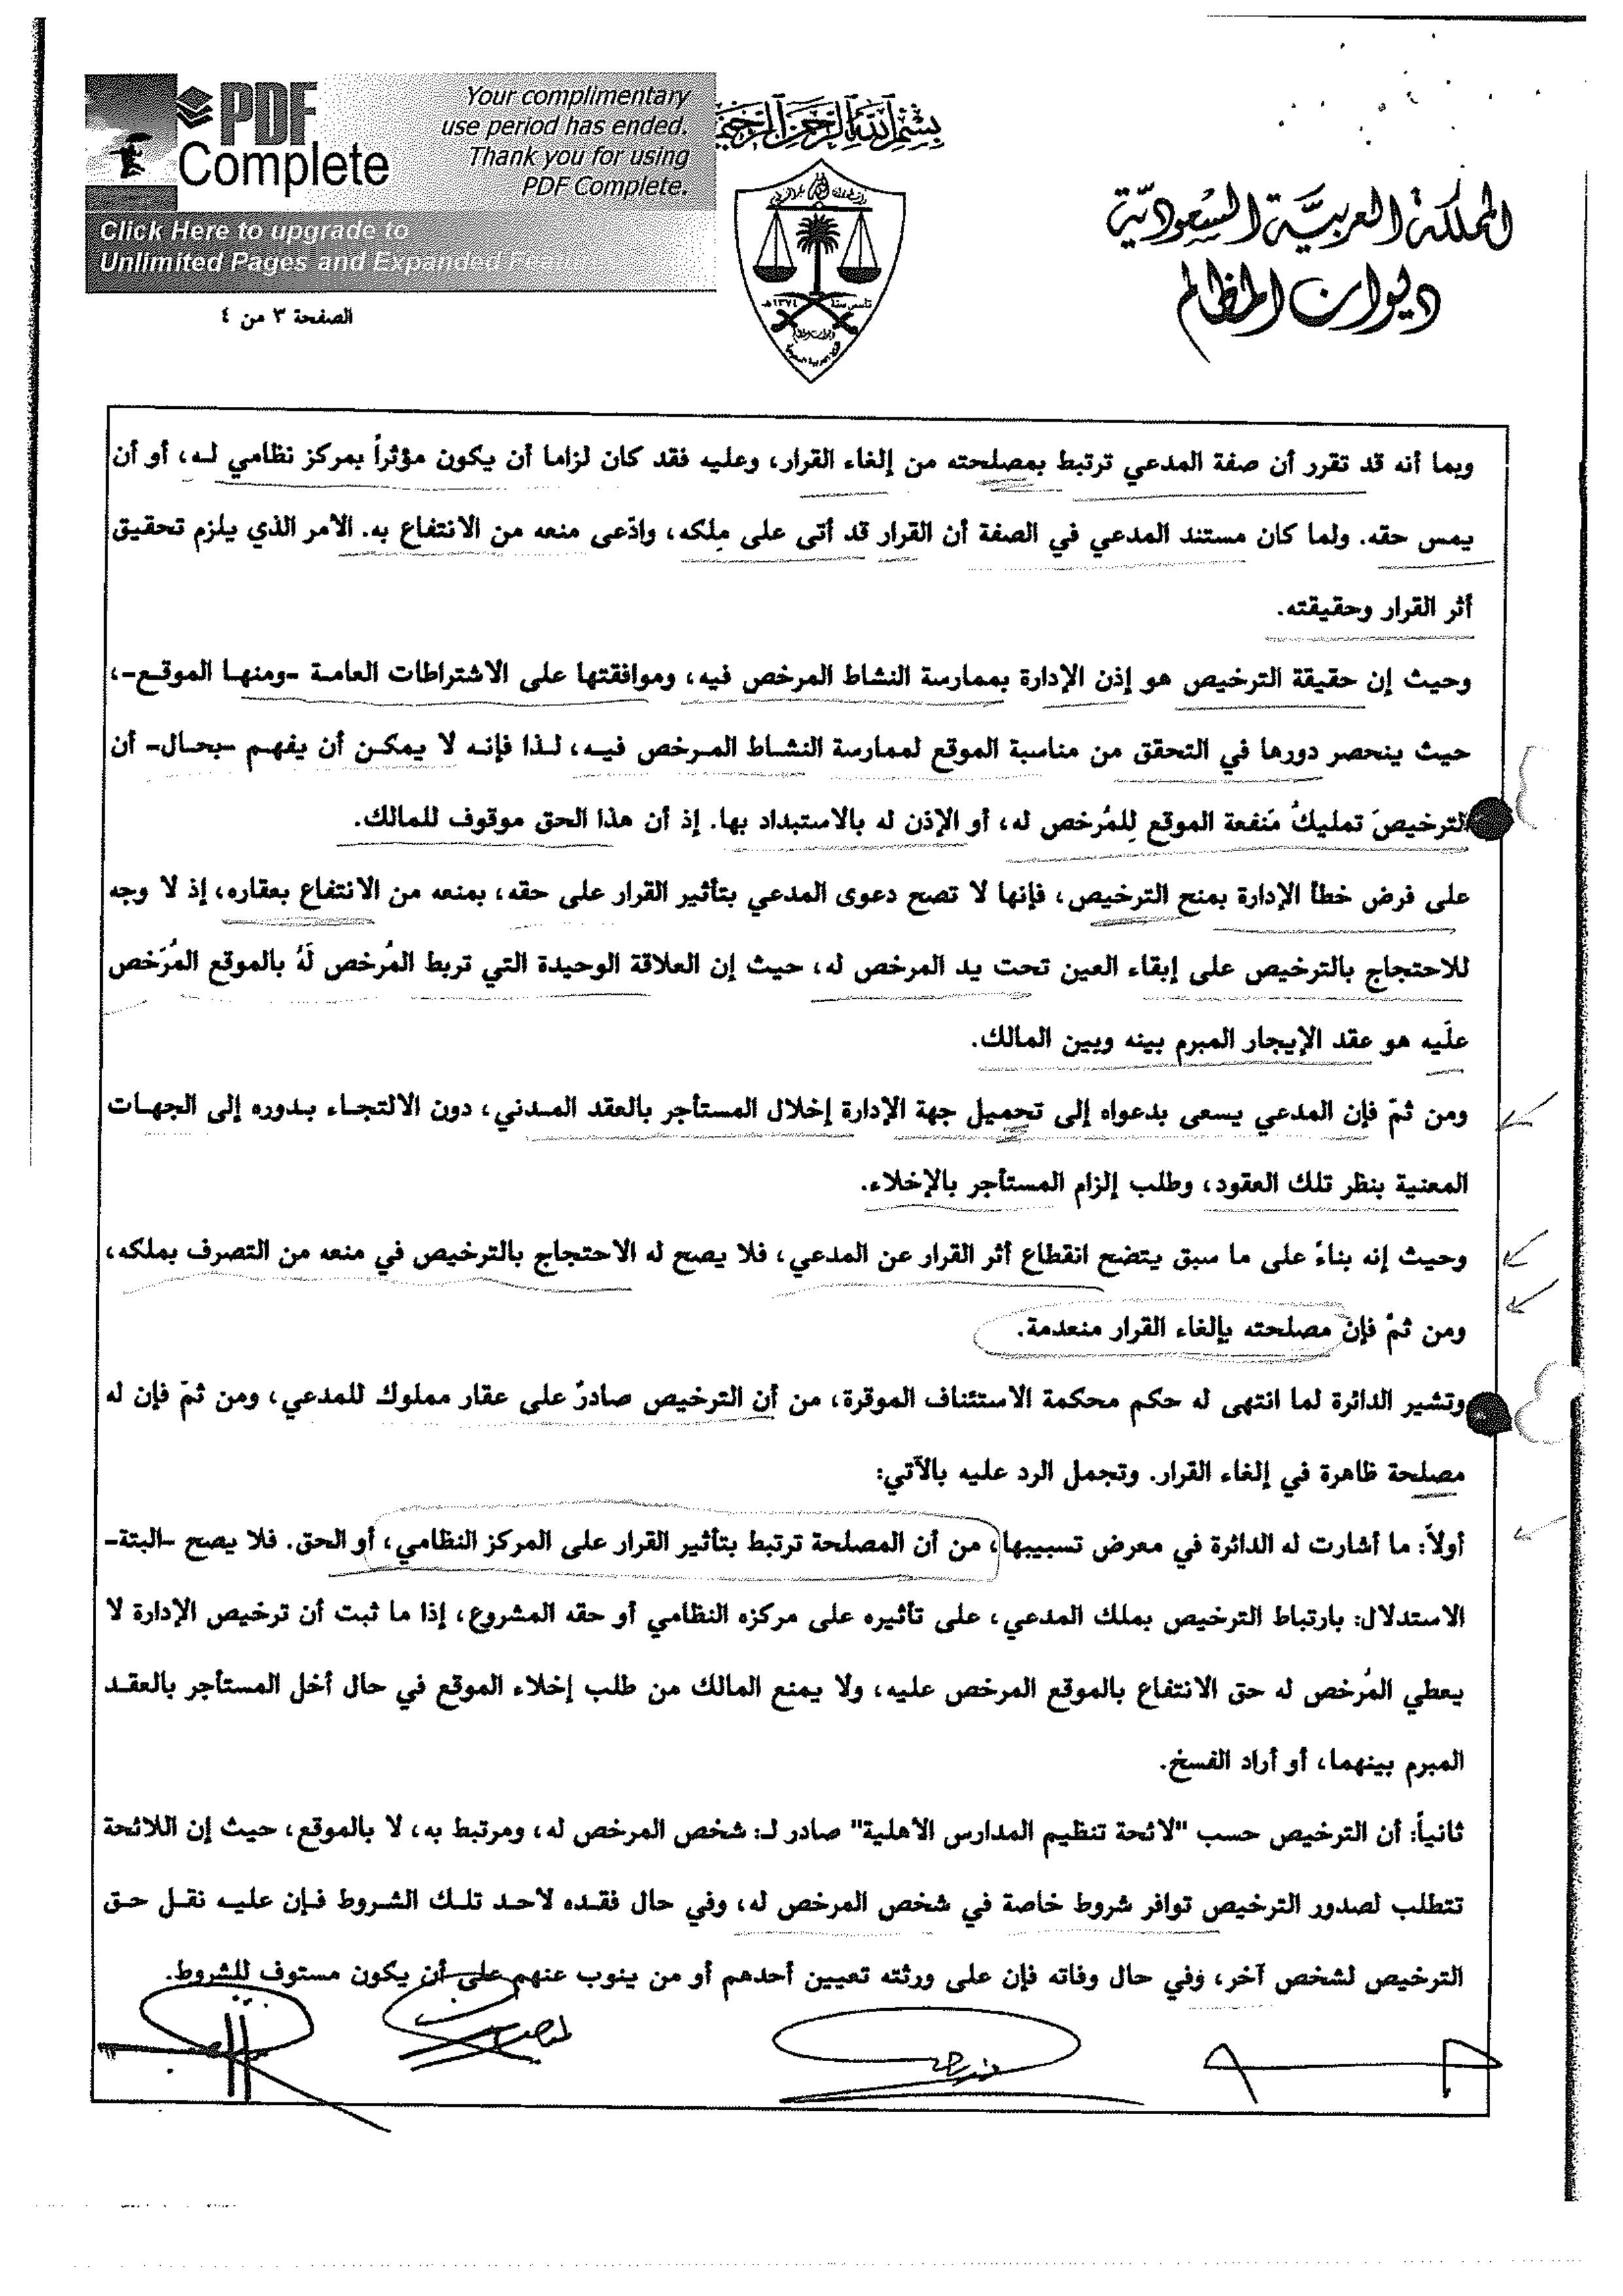 PDF Complete
Your complimentary
use period has ended.
Thank you for using
PDF Complete.
Click Here to upgrade to
Unlimited Pages and Expanded Features
بسم الله الرحمن الرحيم
المملكة العربية السعودية
ديوان المظالم
تأسس سنة ١٣٧٤هـ
الصفحة ٣ من ٤
وبما أنه قد تقرر أن صفة المدعي ترتبط بمصلحته من إلغاء القرار، وعليه فقد كان لزاما أن يكون مؤثراً بمركز نظامي له، أو أن
يمس حقه. ولما كان مستند المدعي في الصفة أن القرار قد أتى على مِلكه، وادّعى منعه من الانتفاع به. الأمر الذي يلزم تحقيق
أثر القرار وحقيقته.
وحيث إن حقيقة الترخيص هو إذن الإدارة بممارسة النشاط المرخص فيه، وموافقتها على الاشتراطات العامة -ومنها الموقع-،
حيث ينحصر دورها في التحقق من مناسبة الموقع لممارسة النشاط المرخص فيه، لذا فإنه لا يمكن أن يفهم -بحال- أن
الترخيصَ تمليكُ مَنفعة الموقع لِلمُرخص له، أو الإذن له بالاستبداد بها. إذ أن هذا الحق موقوف للمالك.
على فرض خطأ الإدارة بمنح الترخيص، فإنها لا تصح دعوى المدعي بتأثير القرار على حقه، بمنعه من الانتفاع بعقاره، إذ لا وجه
للاحتجاج بالترخيص على إبقاء العين تحت يد المرخص له، حيث إن العلاقة الوحيدة التي تربط المُرخص لَهُ بالموقع المُرَخص
علَيه هو عقد الإيجار المبرم بينه وبين المالك.
ومن ثمّ فإن المدعي يسعى بدعواه إلى تحميل جهة الإدارة إخلال المستأجر بالعقد المدني، دون الالتجاء بدوره إلى الجهات
المعنية بنظر تلك العقود، وطلب إلزام المستأجر بالإخلاء.
وحيث إنه بناءً على ما سبق يتضح انقطاع أثر القرار عن المدعي، فلا يصح له الاحتجاج بالترخيص في منعه من التصرف بملكه،
ومن ثمّ فإن مصلحته بإلغاء القرار منعدمة.
وتشير الدائرة لما انتهى له حكم محكمة الاستئناف الموقرة، من أن الترخيص صادرٌ على عقار مملوك للمدعي، ومن ثمّ فإن له
مصلحة ظاهرة في إلغاء القرار. وتجمل الرد عليه بالآتي:
أولاً: ما أشارت له الدائرة في معرض تسبيبها، من أن المصلحة ترتبط بتأثير القرار على المركز النظامي، أو الحق. فلا يصح -البتة-
الاستدلال: بارتباط الترخيص بملك المدعي، على تأثيره على مركزه النظامي أو حقه المشروع، إذا ما ثبت أن ترخيص الإدارة لا
يعطي المُرخص له حق الانتفاع بالموقع المرخص عليه، ولا يمنع المالك من طلب إخلاء الموقع في حال أخل المستأجر بالعقد
المبرم بينهما، أو أراد الفسخ.
ثانياً: أن الترخيص حسب "لائحة تنظيم المدارس الاهلية" صادر لـ: شخص المرخص له، ومرتبط به، لا بالموقع، حيث إن اللائحة
تتطلب لصدور الترخيص توافر شروط خاصة في شخص المرخص له، وفي حال فقده لاحد تلك الشروط فإن عليه نقل حق
الترخيص لشخص آخر، وفي حال وفاته فإن على ورثته تعيين أحدهم أو من ينوب عنهم على أن يكون مستوف للشروط.